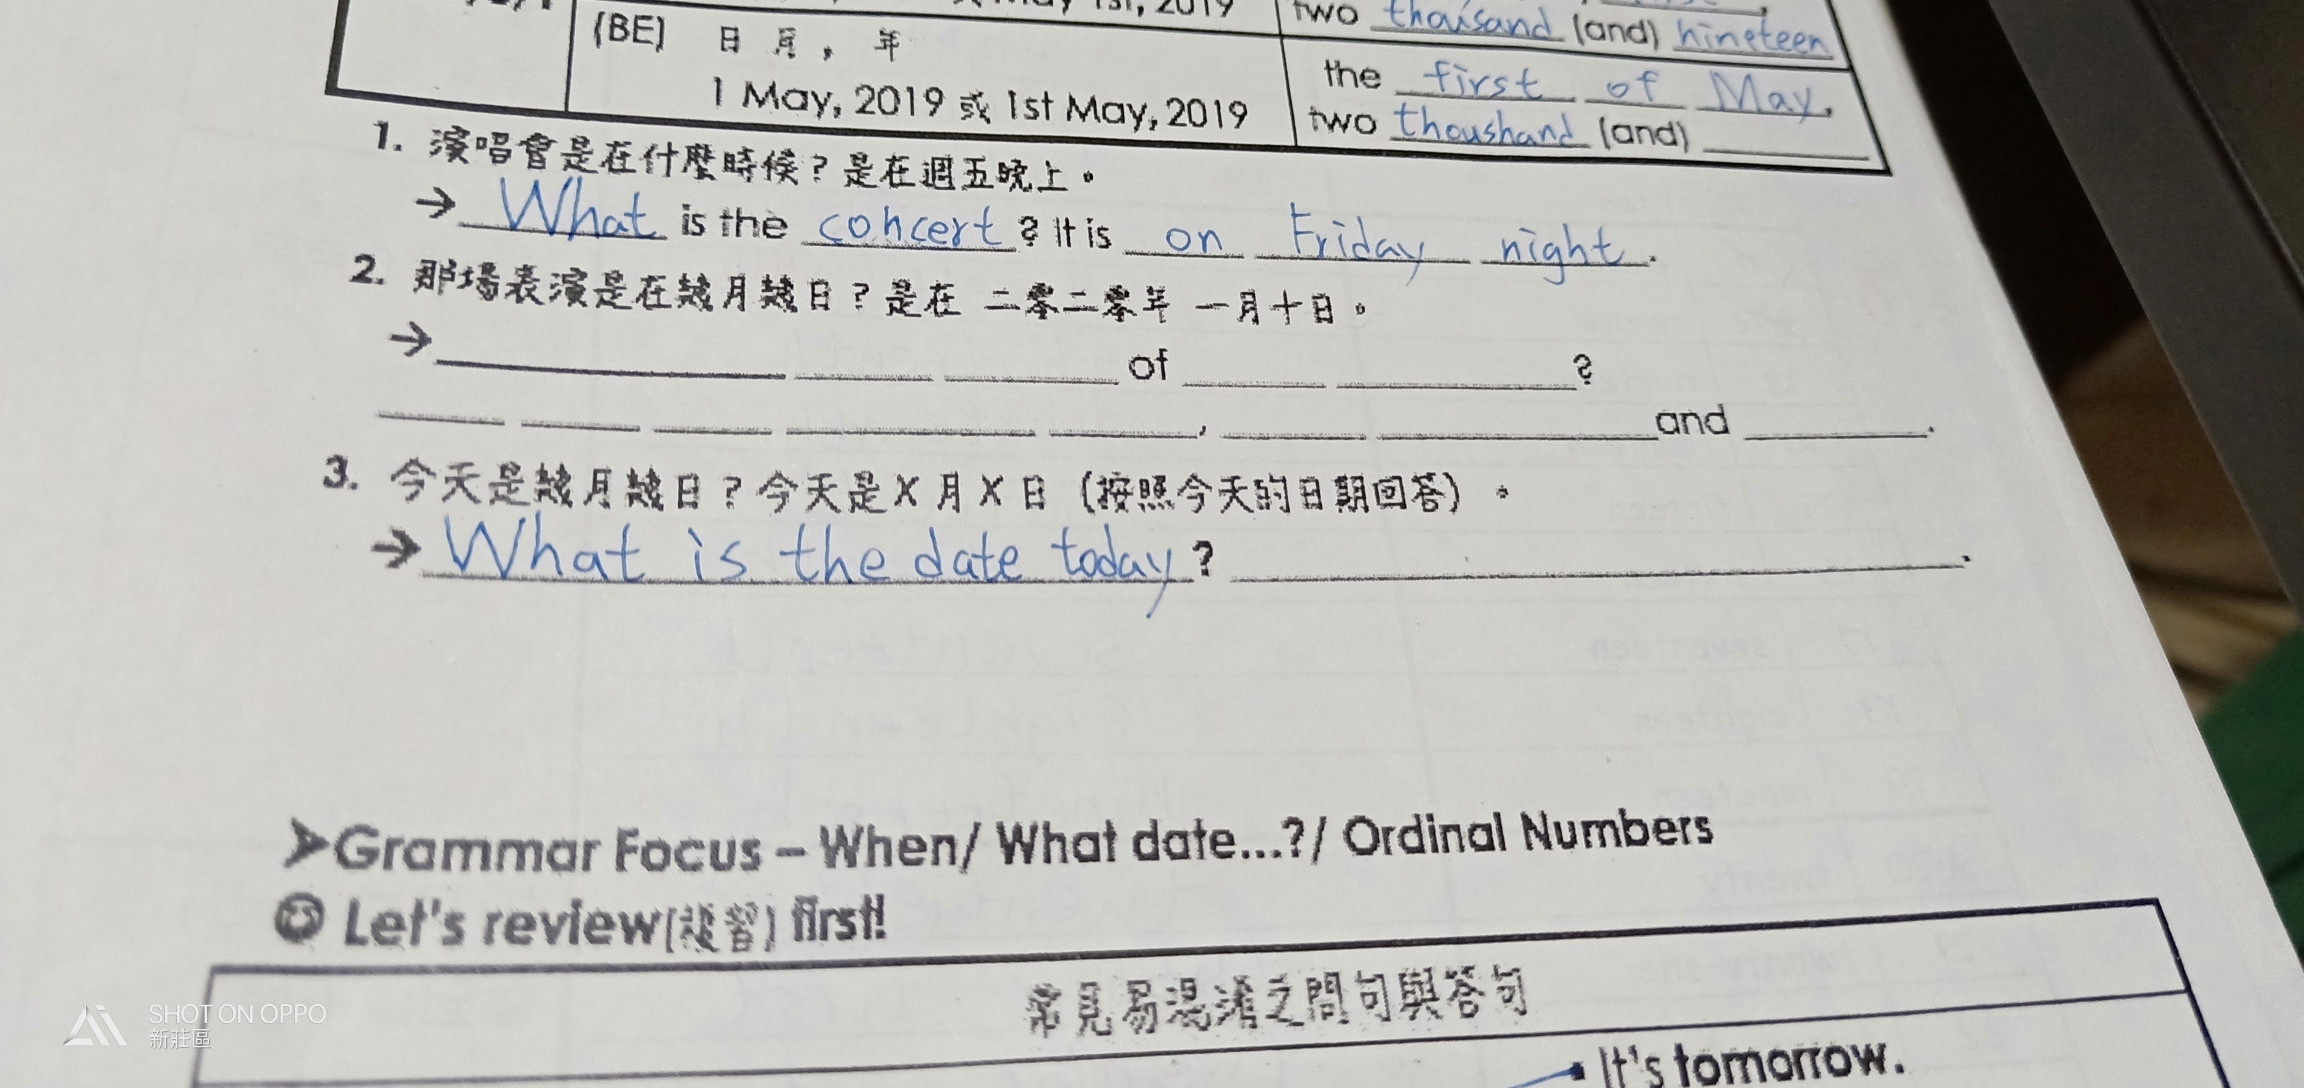 May 1st, 2019
two thousand (and) nineteen
(BE) 日 月, 年
1 May, 2019 或 1st May, 2019
the first of May,
two thoushand (and) ______
1. 演唱會是在什麼時候?是在週五晚上。
→ What is the concert? It is on Friday night.
2. 那場表演是在幾月幾日?是在 二零二零年 一月十日。
→ ______ ______ ______ of ______ ______?
______ ______ ______ ______ ______, ______ ______ and ______.
3. 今天是幾月幾日?今天是X月X日 (按照今天的日期回答)。
→ What is the date today? ______.
➤Grammar Focus – When/ What date...?/ Ordinal Numbers
☺ Let's review(複習) first!
常見易混淆之問句與答句
It's tomorrow.
SHOT ON OPPO
新莊區